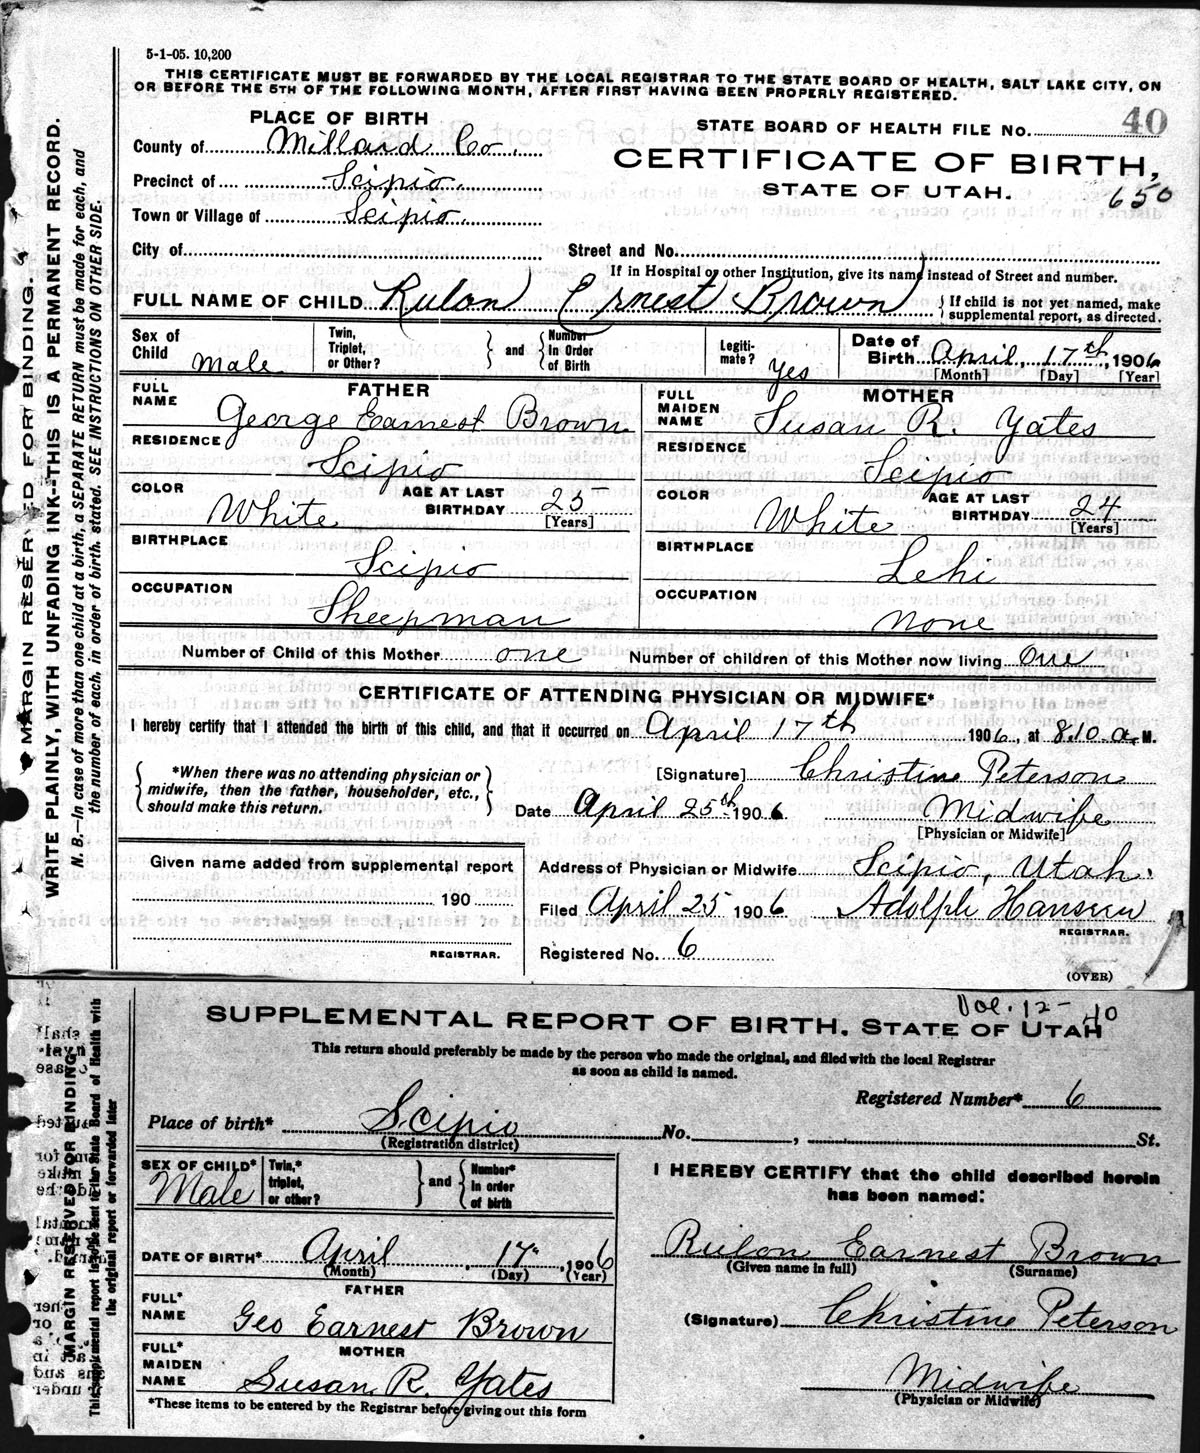 5-1-05. 10,200
THIS CERTIFICATE MUST BE FORWARDED BY THE LOCAL REGISTRAR TO THE STATE BOARD OF HEALTH, SALT LAKE CITY, ON
OR BEFORE THE 5TH OF THE FOLLOWING MONTH, AFTER FIRST HAVING BEEN PROPERLY REGISTERED.
PLACE OF BIRTH
STATE BOARD OF HEALTH FILE No. 40
County of Millard Co.
CERTIFICATE OF BIRTH,
Precinct of Scipio.
STATE OF UTAH. 650
Town or Village of Scipio.
City of
Street and No.
If in Hospital or other Institution, give its name instead of Street and number.
FULL NAME OF CHILD Rulon Ernest Brown
If child is not yet named, make
supplemental report, as directed.
Sex of Child Male
Twin, Triplet, or Other?
and
Number In Order of Birth
Legiti-mate? Yes
Date of Birth April, 17th, 1906
[Month] [Day] [Year]
FATHER
FULL NAME George Earnest Brown
RESIDENCE Scipio
COLOR White
AGE AT LAST BIRTHDAY 25
[Years]
BIRTHPLACE Scipio
OCCUPATION Sheepman
MOTHER
FULL MAIDEN NAME Susan R. Yates
RESIDENCE Scipio
COLOR White
AGE AT LAST BIRTHDAY 24
[Years]
BIRTHPLACE Lehi
OCCUPATION None
Number of Child of this Mother one
Number of children of this Mother now living One
CERTIFICATE OF ATTENDING PHYSICIAN OR MIDWIFE*
I hereby certify that I attended the birth of this child, and that it occurred on April 17th 1906, at 8.10 a. M.
*When there was no attending physician or
midwife, then the father, householder, etc.,
should make this return.
[Signature] Christine Peterson
Date April 25th 1906 Midwife
[Physician or Midwife]
Given name added from supplemental report
190
REGISTRAR.
Address of Physician or Midwife Scipio, Utah.
Filed April 25 1906 Adolph Hansen
REGISTRAR.
Registered No. 6
(OVER)
MARGIN RESERVED FOR BINDING.
WRITE PLAINLY, WITH UNFADING INK--THIS IS A PERMANENT RECORD.
N. B.—In case of more than one child at a birth, a SEPARATE RETURN must be made for each, and
the number of each, in order of birth, stated. SEE INSTRUCTIONS ON OTHER SIDE.
Vol. 12- 40
SUPPLEMENTAL REPORT OF BIRTH. STATE OF UTAH
This return should preferably be made by the person who made the original, and filed with the local Registrar
as soon as child is named.
Registered Number* 6
Place of birth* Scipio No. , St.
(Registration district)
SEX OF CHILD* Male
Twin,* triplet, or other?
and
Number* In order of birth
DATE OF BIRTH* April 17, 1906
(Month) (Day) (Year)
FATHER
FULL* NAME Geo Earnest Brown
MOTHER
FULL* MAIDEN NAME Susan R. Yates
*These items to be entered by the Registrar before giving out this form
I HEREBY CERTIFY that the child described herein
has been named:
Rulon Earnest Brown
(Given name in full) (Surname)
(Signature) Christine Peterson
Midwife
(Physician or Midwife)
MARGIN RESERVED FOR BINDING
This supplemental report is to be sent to the State Board of Health with
the original report or forwarded later